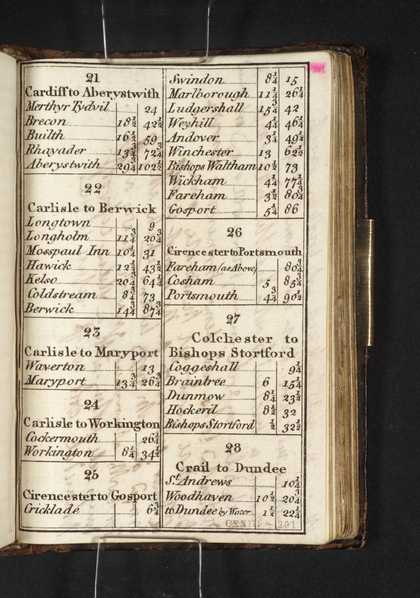 21
Cardiff to Aberystwith
Merthyr Tydvil 24
Brecon 18½ 42½
Builth 16½ 59
Rhayader 13¾ 72¾
Aberystwith 29¾ 102½
22
Carlisle to Berwick
Longtown 9
Longholm 11¾ 20¾
Mosspaul Inn 10¼ 31
Hawick 12½ 43½
Kelso 20¾ 64¼
Coldstream 8¾ 73
Berwick 14¾ 87¾
23
Carlisle to Maryport
Waverton 13
Maryport 13¾ 26¾
24
Carlisle to Workington
Cockermouth 26¼
Workington 8¼ 34½
25
Cirencester to Gosport
Cricklade 6¾
Swindon 8¼ 15
Marlborough 11¼ 26¼
Ludgershall 15¾ 42
Weyhill 4¼ 46¼
Andover 3¼ 49½
Winchester 13 62½
Bishops Waltham 10½ 73
Wickham 4½ 77½
Fareham 3¼ 80¾
Gosport 5¼ 86
26
Cirencester to Portsmouth
Fareham (as Above) 80¾
Cosham 5 85¾
Portsmouth 4¾ 90½
27
Colchester to
Bishops Stortford
Coggeshall 9¼
Braintree 6 15¼
Dunmow 8¼ 23½
Hockeril 8½ 32
Bishops Stortford ½ 32½
28
Crail to Dundee
St. Andrews 10¼
Woodhaven 10½ 20¾
to Dundee by Water 1½ 22¼